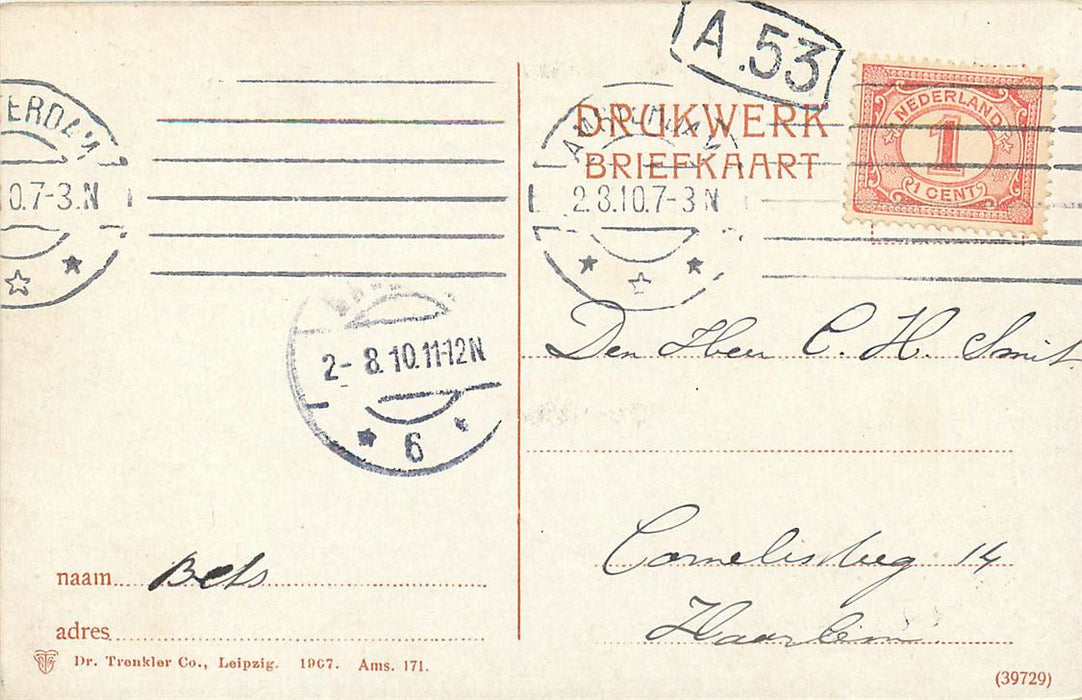 A.53
TERDAM
0.7-3.N
DRUKWERK
BRIEFKAART
NEDERLAND
1
1 CENT
2.8.10.7-3 N
2-8.10.11-12N
6
Den Heer C. H. Smit
Cornelisteeg 14
Haarlem
naam Bets
adres
Dr. Trenkler Co., Leipzig. 1907. Ams. 171.
(39729)